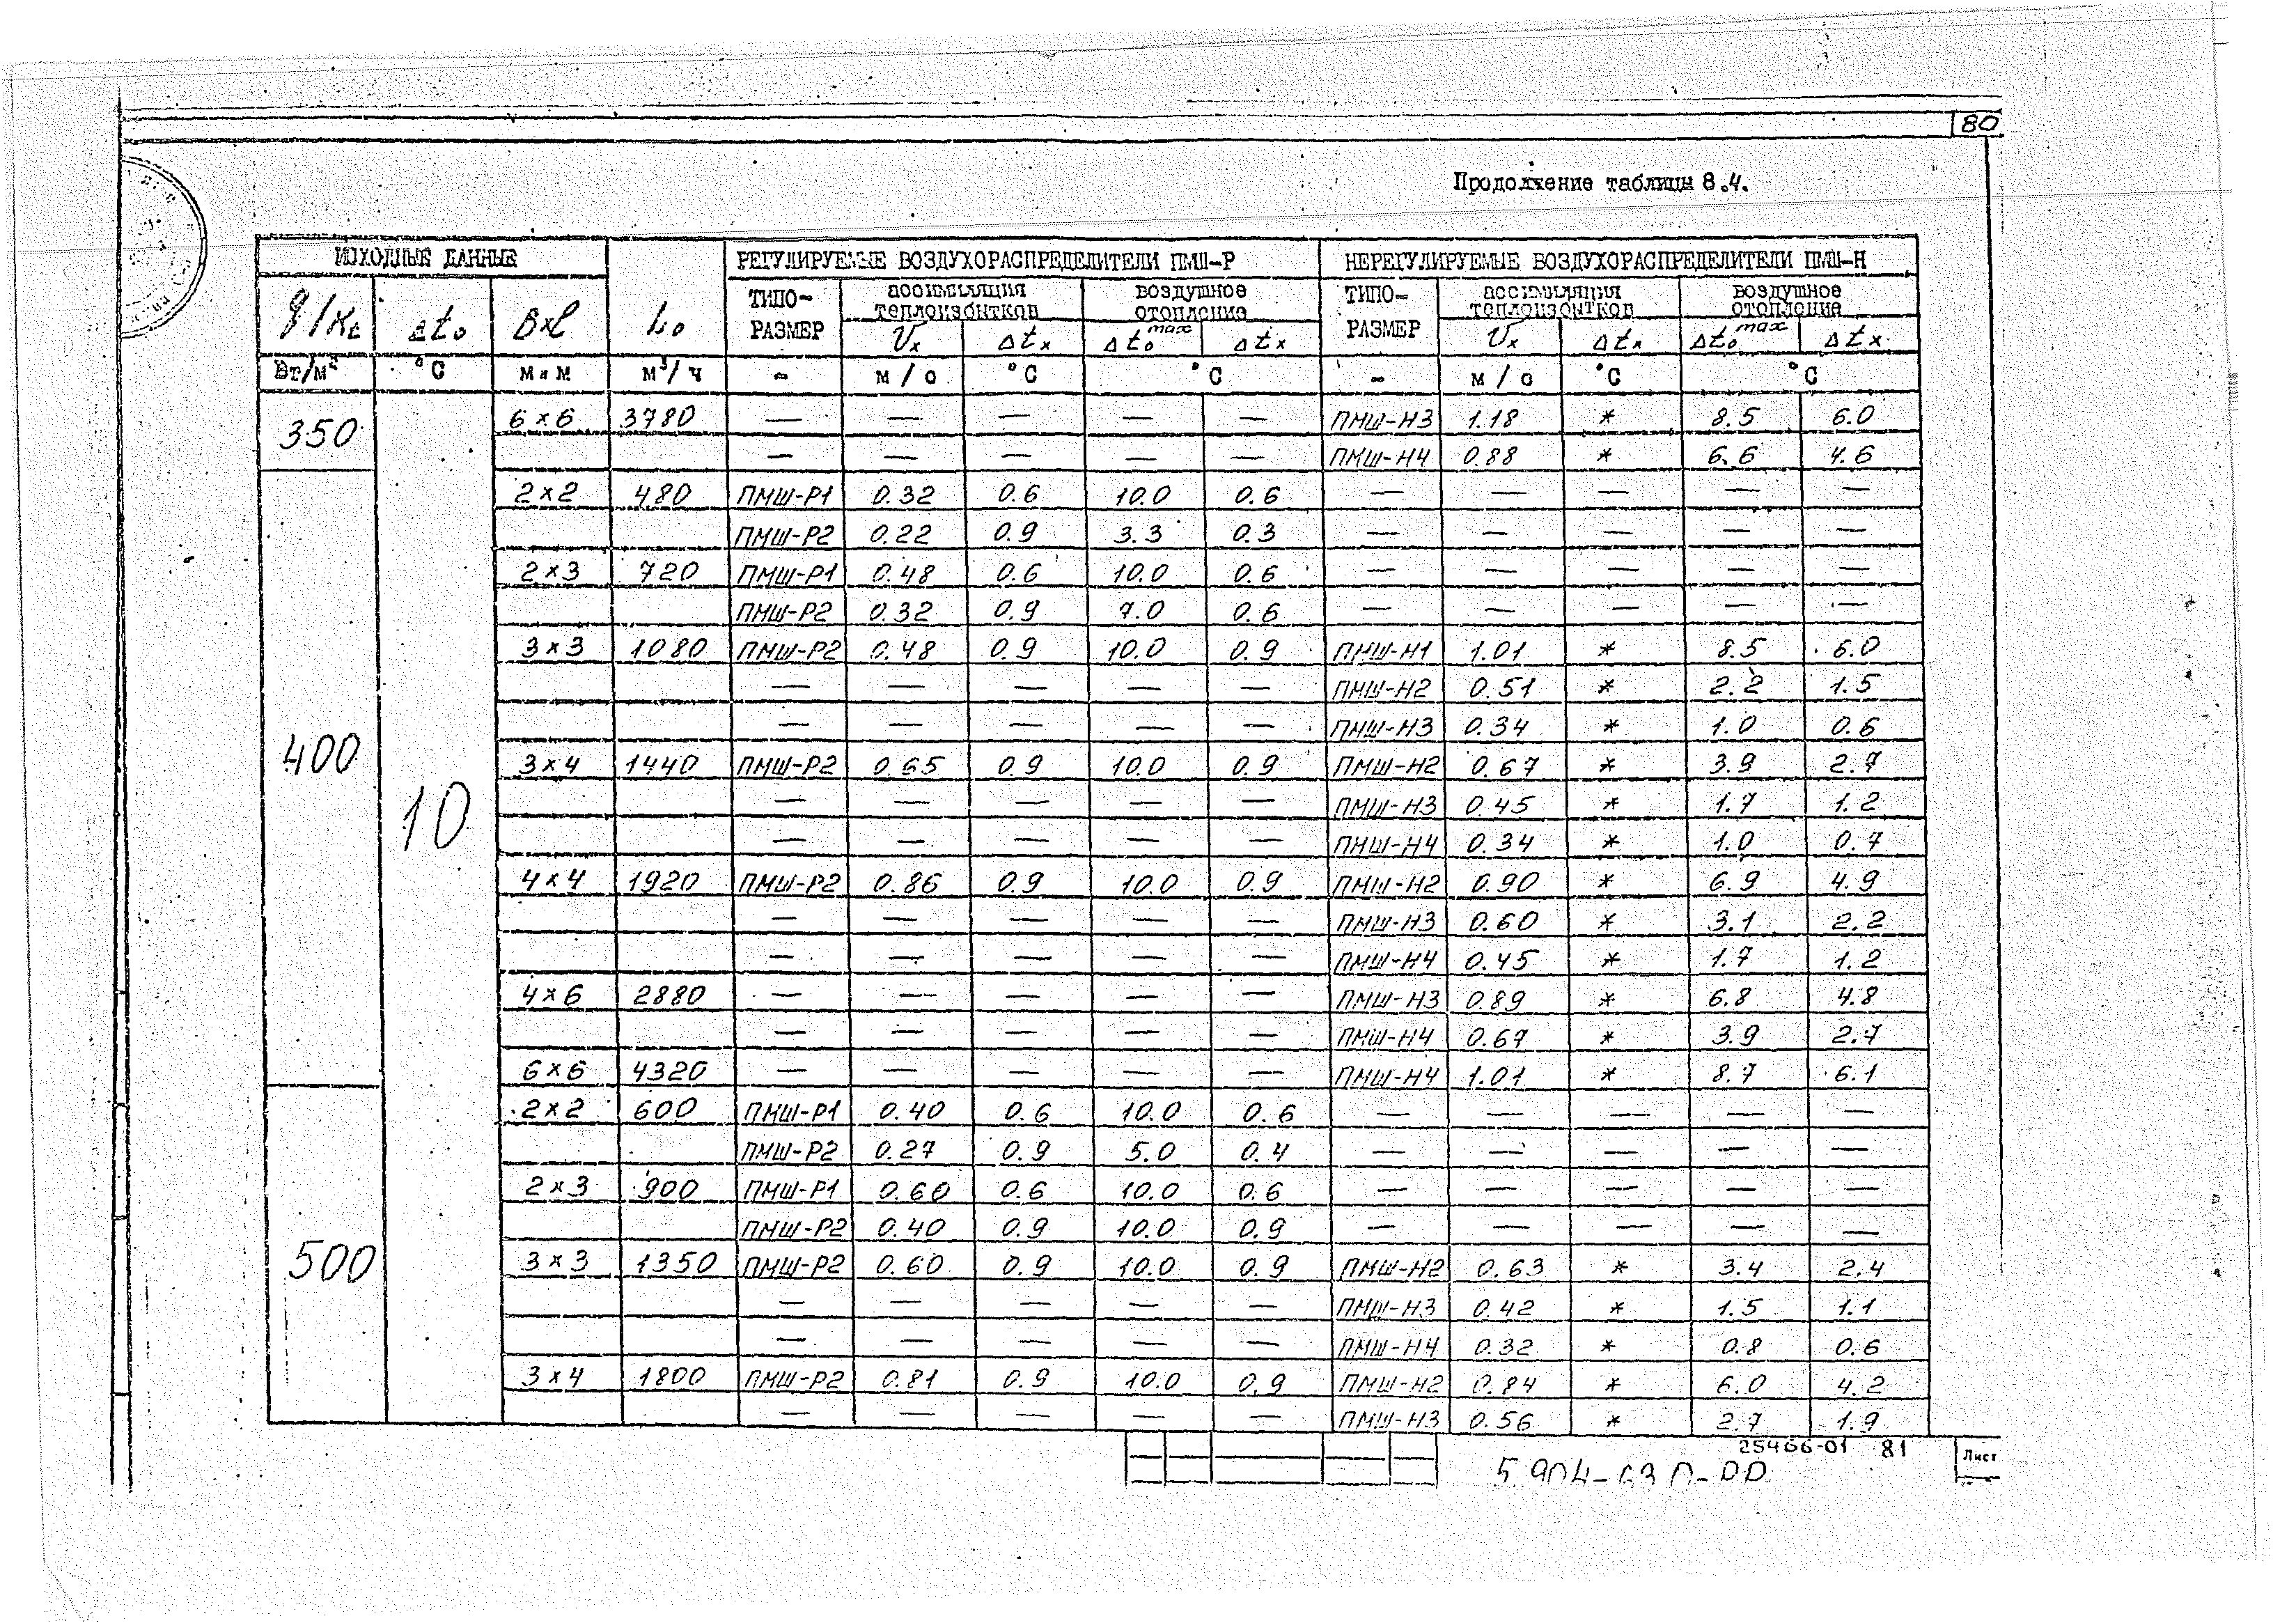 80
Продолжение таблицы 8.4.
ИСХОДНЫЕ ДАННЫЕ
РЕГУЛИРУЕМЫЕ ВОЗДУХОРАСПРЕДЕЛИТЕЛИ ПМШ-Р
НЕРЕГУЛИРУЕМЫЕ ВОЗДУХОРАСПРЕДЕЛИТЕЛИ ПМШ-Н
q/Kt Δto B×l Lo ТИПО-РАЗМЕР ассимиляция теплоизбытков воздушное отопление ТИПО-РАЗМЕР ассимиляция теплоизбытков воздушное отопление
Vx Δtx Δto max Δtx Vx Δtx Δto max Δtx
Вт/м² °С м×м м³/ч - м/с °С °С - м/с °С °С
350 10 6×6 3780 — — — — — ПМШ-Н3 1.18 * 8.5 6.0
— — — — — ПМШ-Н4 0.88 * 6.6 4.6
400 2×2 480 ПМШ-Р1 0.32 0.6 10.0 0.6 — — — — —
ПМШ-Р2 0.22 0.9 3.3 0.3 — — — — —
2×3 720 ПМШ-Р1 0.48 0.6 10.0 0.6 — — — — —
ПМШ-Р2 0.32 0.9 7.0 0.6 — — — — —
3×3 1080 ПМШ-Р2 0.48 0.9 10.0 0.9 ПМШ-Н1 1.01 * 8.5 6.0
— — — — — ПМШ-Н2 0.51 * 2.2 1.5
— — — — — ПМШ-Н3 0.34 * 1.0 0.6
3×4 1440 ПМШ-Р2 0.65 0.9 10.0 0.9 ПМШ-Н2 0.67 * 3.9 2.7
— — — — — ПМШ-Н3 0.45 * 1.7 1.2
— — — — — ПМШ-Н4 0.34 * 1.0 0.7
4×4 1920 ПМШ-Р2 0.86 0.9 10.0 0.9 ПМШ-Н2 0.90 * 6.9 4.9
— — — — — ПМШ-Н3 0.60 * 3.1 2.2
— — — — — ПМШ-Н4 0.45 * 1.7 1.2
4×6 2880 — — — — — ПМШ-Н3 0.89 * 6.8 4.8
— — — — — ПМШ-Н4 0.67 * 3.9 2.7
6×6 4320 — — — — — ПМШ-Н4 1.01 * 8.7 6.1
500 2×2 600 ПМШ-Р1 0.40 0.6 10.0 0.6 — — — — —
ПМШ-Р2 0.27 0.9 5.0 0.4 — — — — —
2×3 900 ПМШ-Р1 0.60 0.6 10.0 0.6 — — — — —
ПМШ-Р2 0.40 0.9 10.0 0.9 — — — — —
3×3 1350 ПМШ-Р2 0.60 0.9 10.0 0.9 ПМШ-Н2 0.63 * 3.4 2.4
— — — — — ПМШ-Н3 0.42 * 1.5 1.1
— — — — — ПМШ-Н4 0.32 * 0.8 0.6
3×4 1800 ПМШ-Р2 0.81 0.9 10.0 0.9 ПМШ-Н2 0.84 * 6.0 4.2
— — — — — ПМШ-Н3 0.56 * 2.7 1.9
25466-01 81
Лист